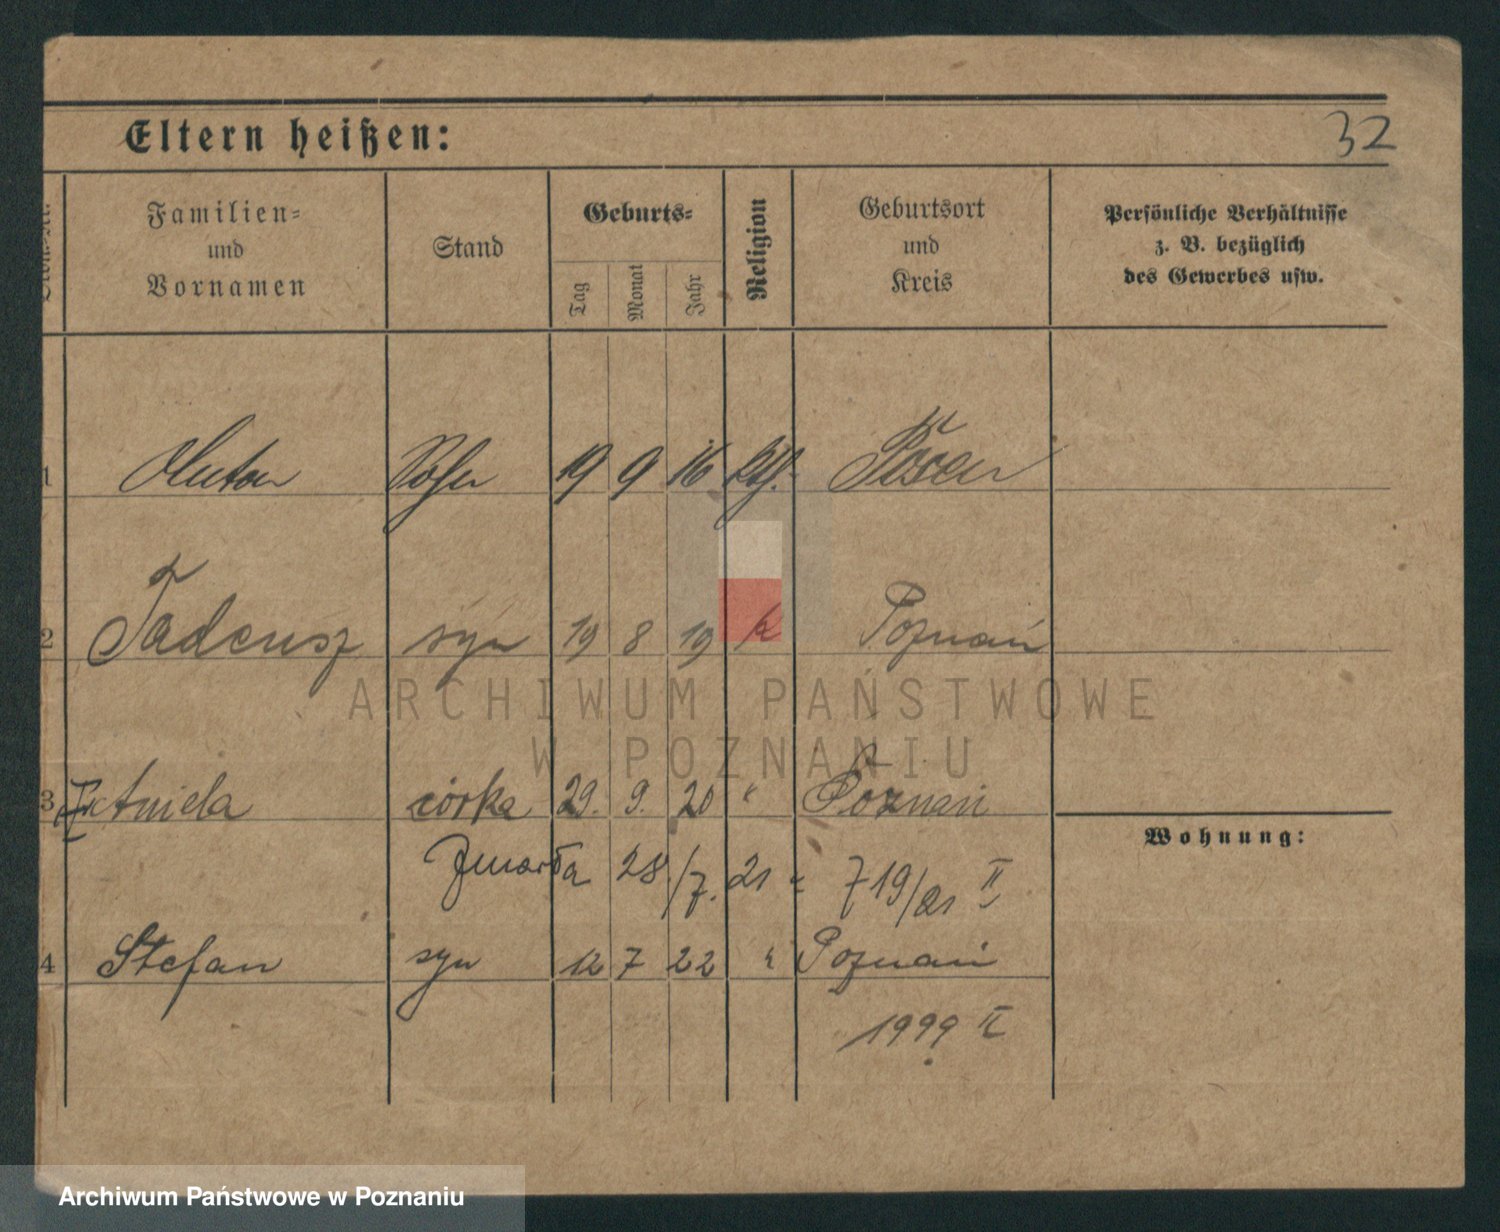 Eltern heißen:
32
Familien= und Vornamen
Stand
Geburts=
Tag
Monat
Jahr
Religion
Geburtsort und Kreis
Persönliche Verhältnisse
z. B. bezüglich
des Gewerbes usw.
1 Anton Sohn 19 9 16 Posen
2 Tadeusz syn 19 8 19 k Poznań
ARCHIWUM PAŃSTWOWE
W POZNANIU
3 Aniela córka 29. 9. 20 " Poznań
Wohnung:
Zmarła 28/7. 21 719/21 II
4 Stefan syn 12 7 22 " Poznań
1999 II
Archiwum Państwowe w Poznaniu